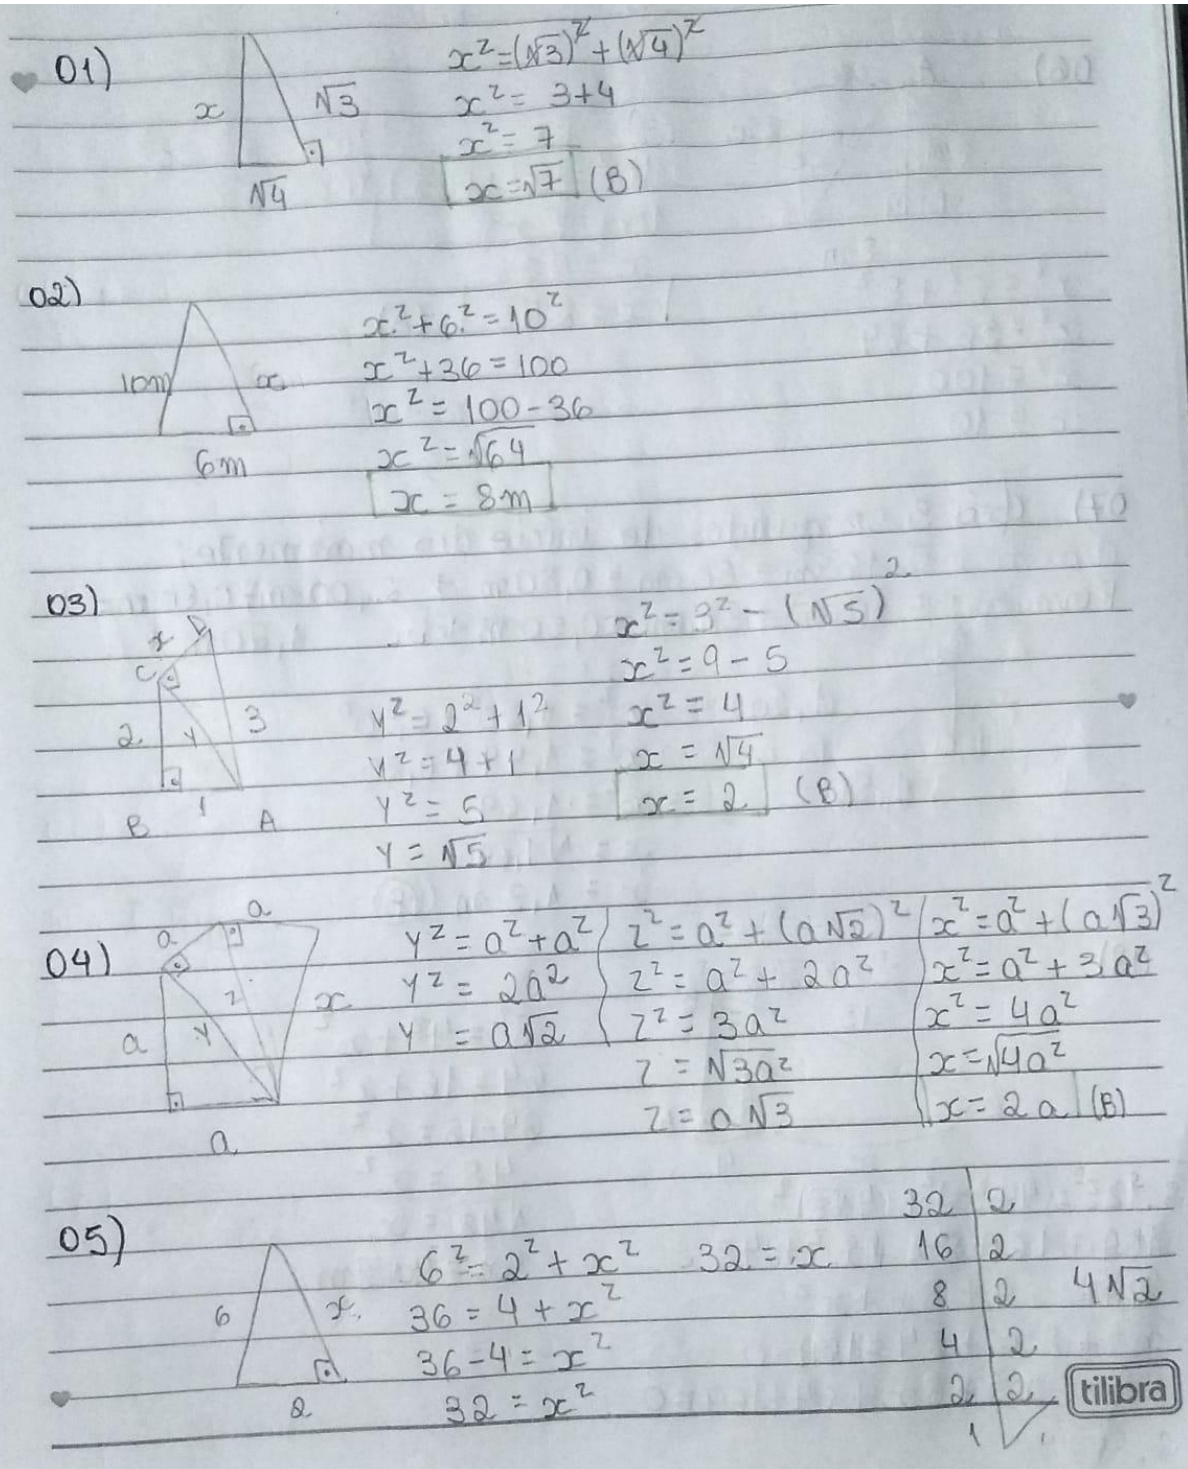 01)
x
√3
√4
x² = (√3)² + (√4)²
x² = 3+4
x² = 7
x = √7 (B)
02)
10m
x
6m
x² + 6² = 10²
x² + 36 = 100
x² = 100 - 36
x² = √64
x = 8m
03)
x D
C
2 y 3
1
B A
y² = 2² + 1²
y² = 4 + 1
y² = 5
y = √5
x² = 3² - (√5)²
x² = 9 - 5
x² = 4
x = √4
x = 2 (B)
04)
a
a
z x
a y
a
y² = a² + a²
y² = 2a²
y = a√2
z² = a² + (a√2)²
z² = a² + 2a²
z² = 3a²
z = √3a²
z = a√3
x² = a² + (a√3)²
x² = a² + 3a²
x² = 4a²
x = √4a²
x = 2a (B)
05)
6 x
2
6² = 2² + x²
36 = 4 + x²
36 - 4 = x²
32 = x²
32 = x
32 | 2
16 | 2
8 | 2
4 | 2
2 | 2
1
4√2
tilibra